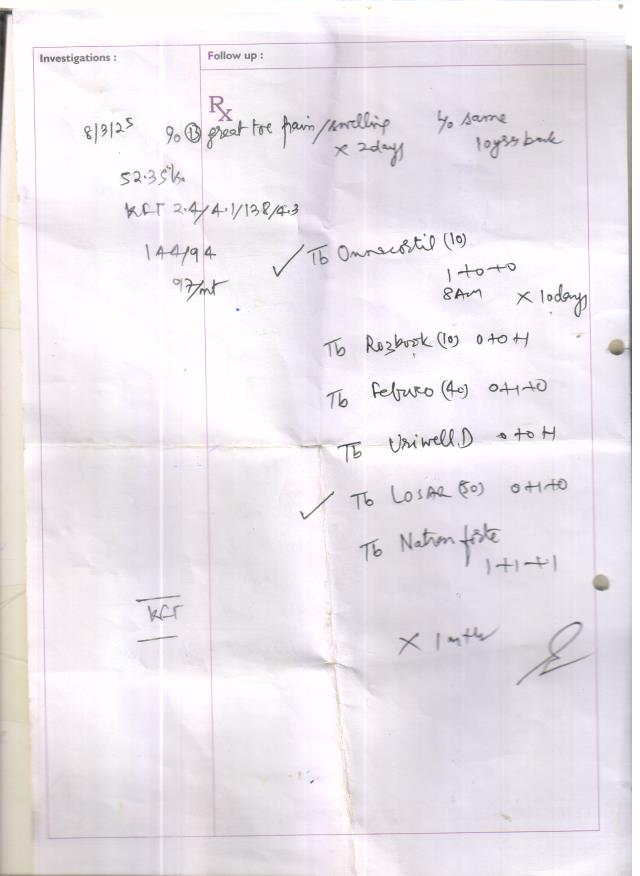 Investigations :
Follow up :
Rx
8/3/25 c/o great toe pain/swelling
x 2days
h/o same
10yrs back
52.35k
KFT 2.4/4.1/138/4.3
144/94
97/mt
✓ Tb Omnacortil (10)
1+0+0
8AM x 10days
Tb Rozbook (10) 0+0+1
Tb Feburo (40) 0+1+0
Tb Uriwell D 0+0+1
✓ Tb LOSAR (50) 0+1+0
Tb Natron forte
1+1+1
KFT
x 1 mth